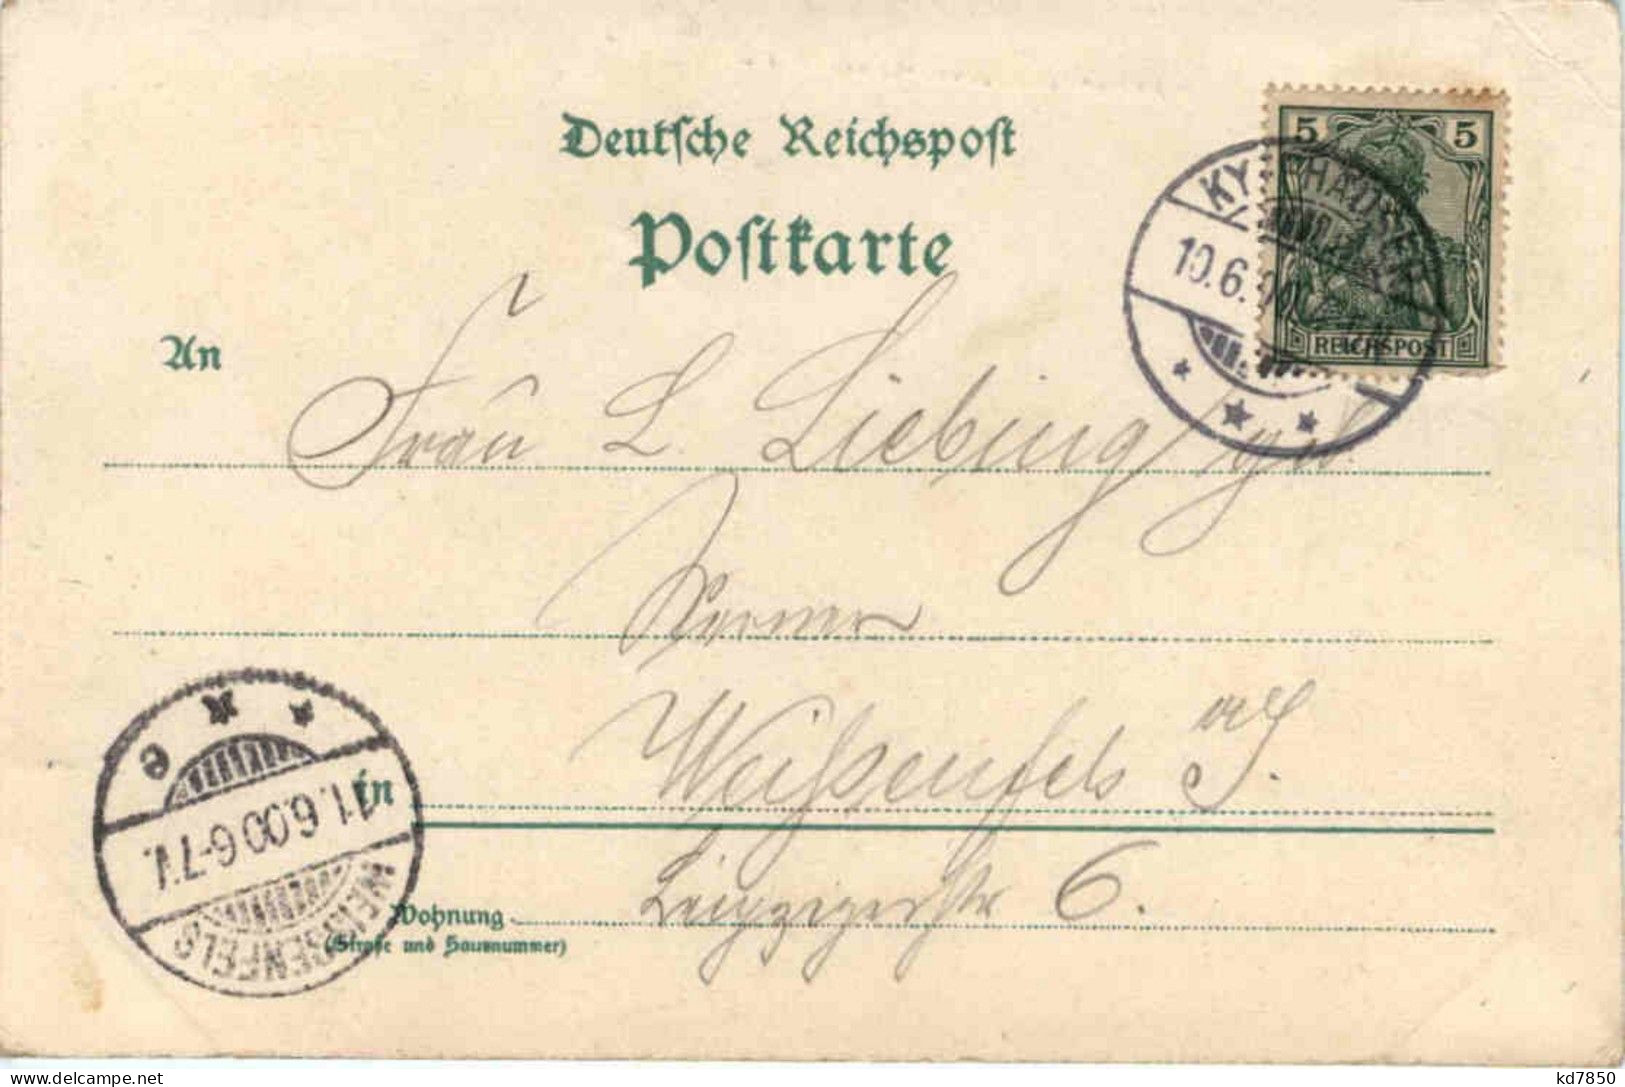 Deutsche Reichspost
Postkarte
5 5
REICHSPOST
KYFFHÄUSER
10.6.00
An
Frau L. Liebing / geb.
in
Weißenfels a/S.
Wohnung
Leipzigerstr 6.
(Straße und Hausnummer)
WEISSENFELS
11.6.00 6-7V.
e
delcampe.net
kd7850